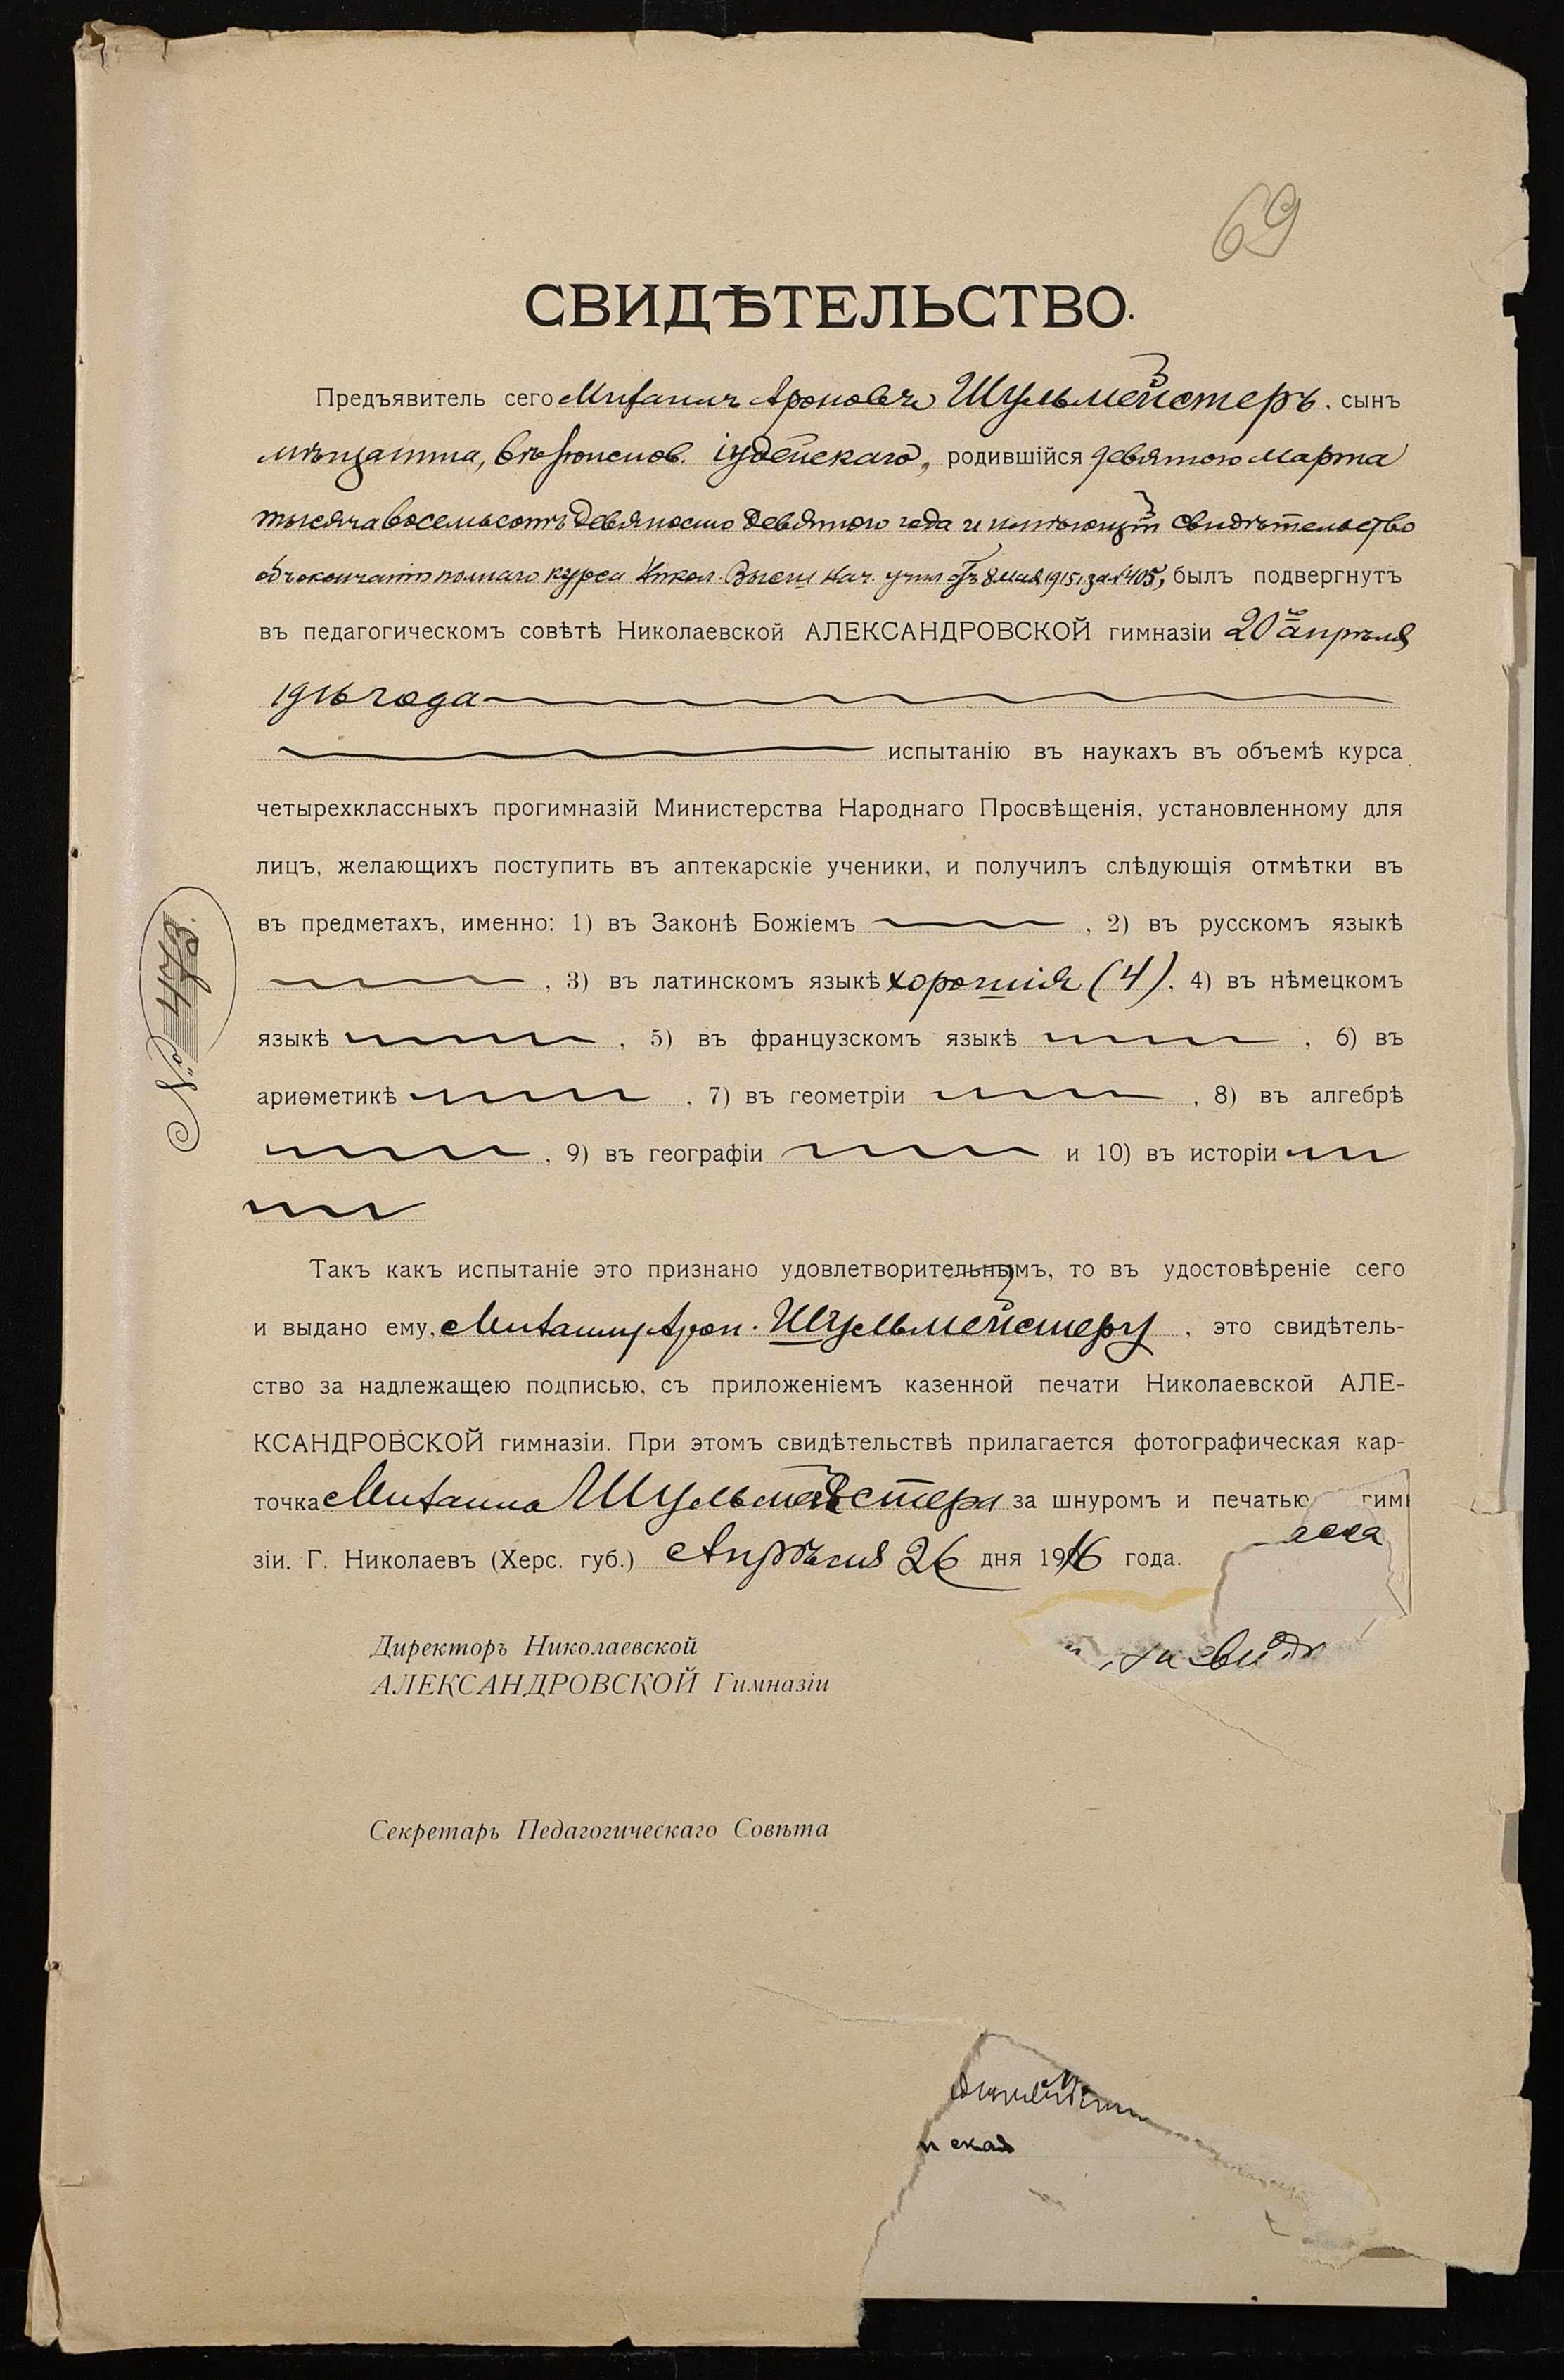 69
СВИДѢТЕЛЬСТВО.
Предъявитель сего Митаилъ Ароновъ Шульмейстеръ, сынъ
мѣщанина, вѣроисповѣд. іудейскаго, родившійся девятого марта
тысяча восемьсотъ девяносто девятого года и имѣющій свидѣтельство
объ окончаніи полнаго курса Никол. Высш. Нач. учил. отъ 8 мая 1915 г. за № 405, былъ подвергнутъ
въ педагогическомъ совѣтѣ Николаевской АЛЕКСАНДРОВСКОЙ гимназіи 20 апрѣля
1916 года
испытанію въ наукахъ въ объемѣ курса
четырехклассныхъ прогимназій Министерства Народнаго Просвѣщенія, установленному для
лицъ, желающихъ поступить въ аптекарскіе ученики, и получилъ слѣдующія отмѣтки въ
въ предметахъ, именно: 1) въ Законѣ Божіемъ , 2) въ русскомъ языкѣ
, 3) въ латинскомъ языкѣ хорошія (4), 4) въ нѣмецкомъ
языкѣ , 5) въ французскомъ языкѣ , 6) въ
ариѳметикѣ , 7) въ геометріи , 8) въ алгебрѣ
, 9) въ географіи и 10) въ исторіи
№ 473.
Такъ какъ испытаніе это признано удовлетворительнымъ, то въ удостовѣреніе сего
и выдано ему, Арон. Шульмейстеру, это свидѣтель-
ство за надлежащею подписью, съ приложеніемъ казенной печати Николаевской АЛЕ-
КСАНДРОВСКОЙ гимназіи. При этомъ свидѣтельствѣ прилагается фотографическая кар-
точка Шульмейстера за шнуромъ и печатью гим
зіи. Г. Николаевъ (Херс. губ.) Апрѣля 26 дня 1916 года.
Директоръ Николаевской
АЛЕКСАНДРОВСКОЙ Гимназіи
Секретарь Педагогическаго Совѣта
ская